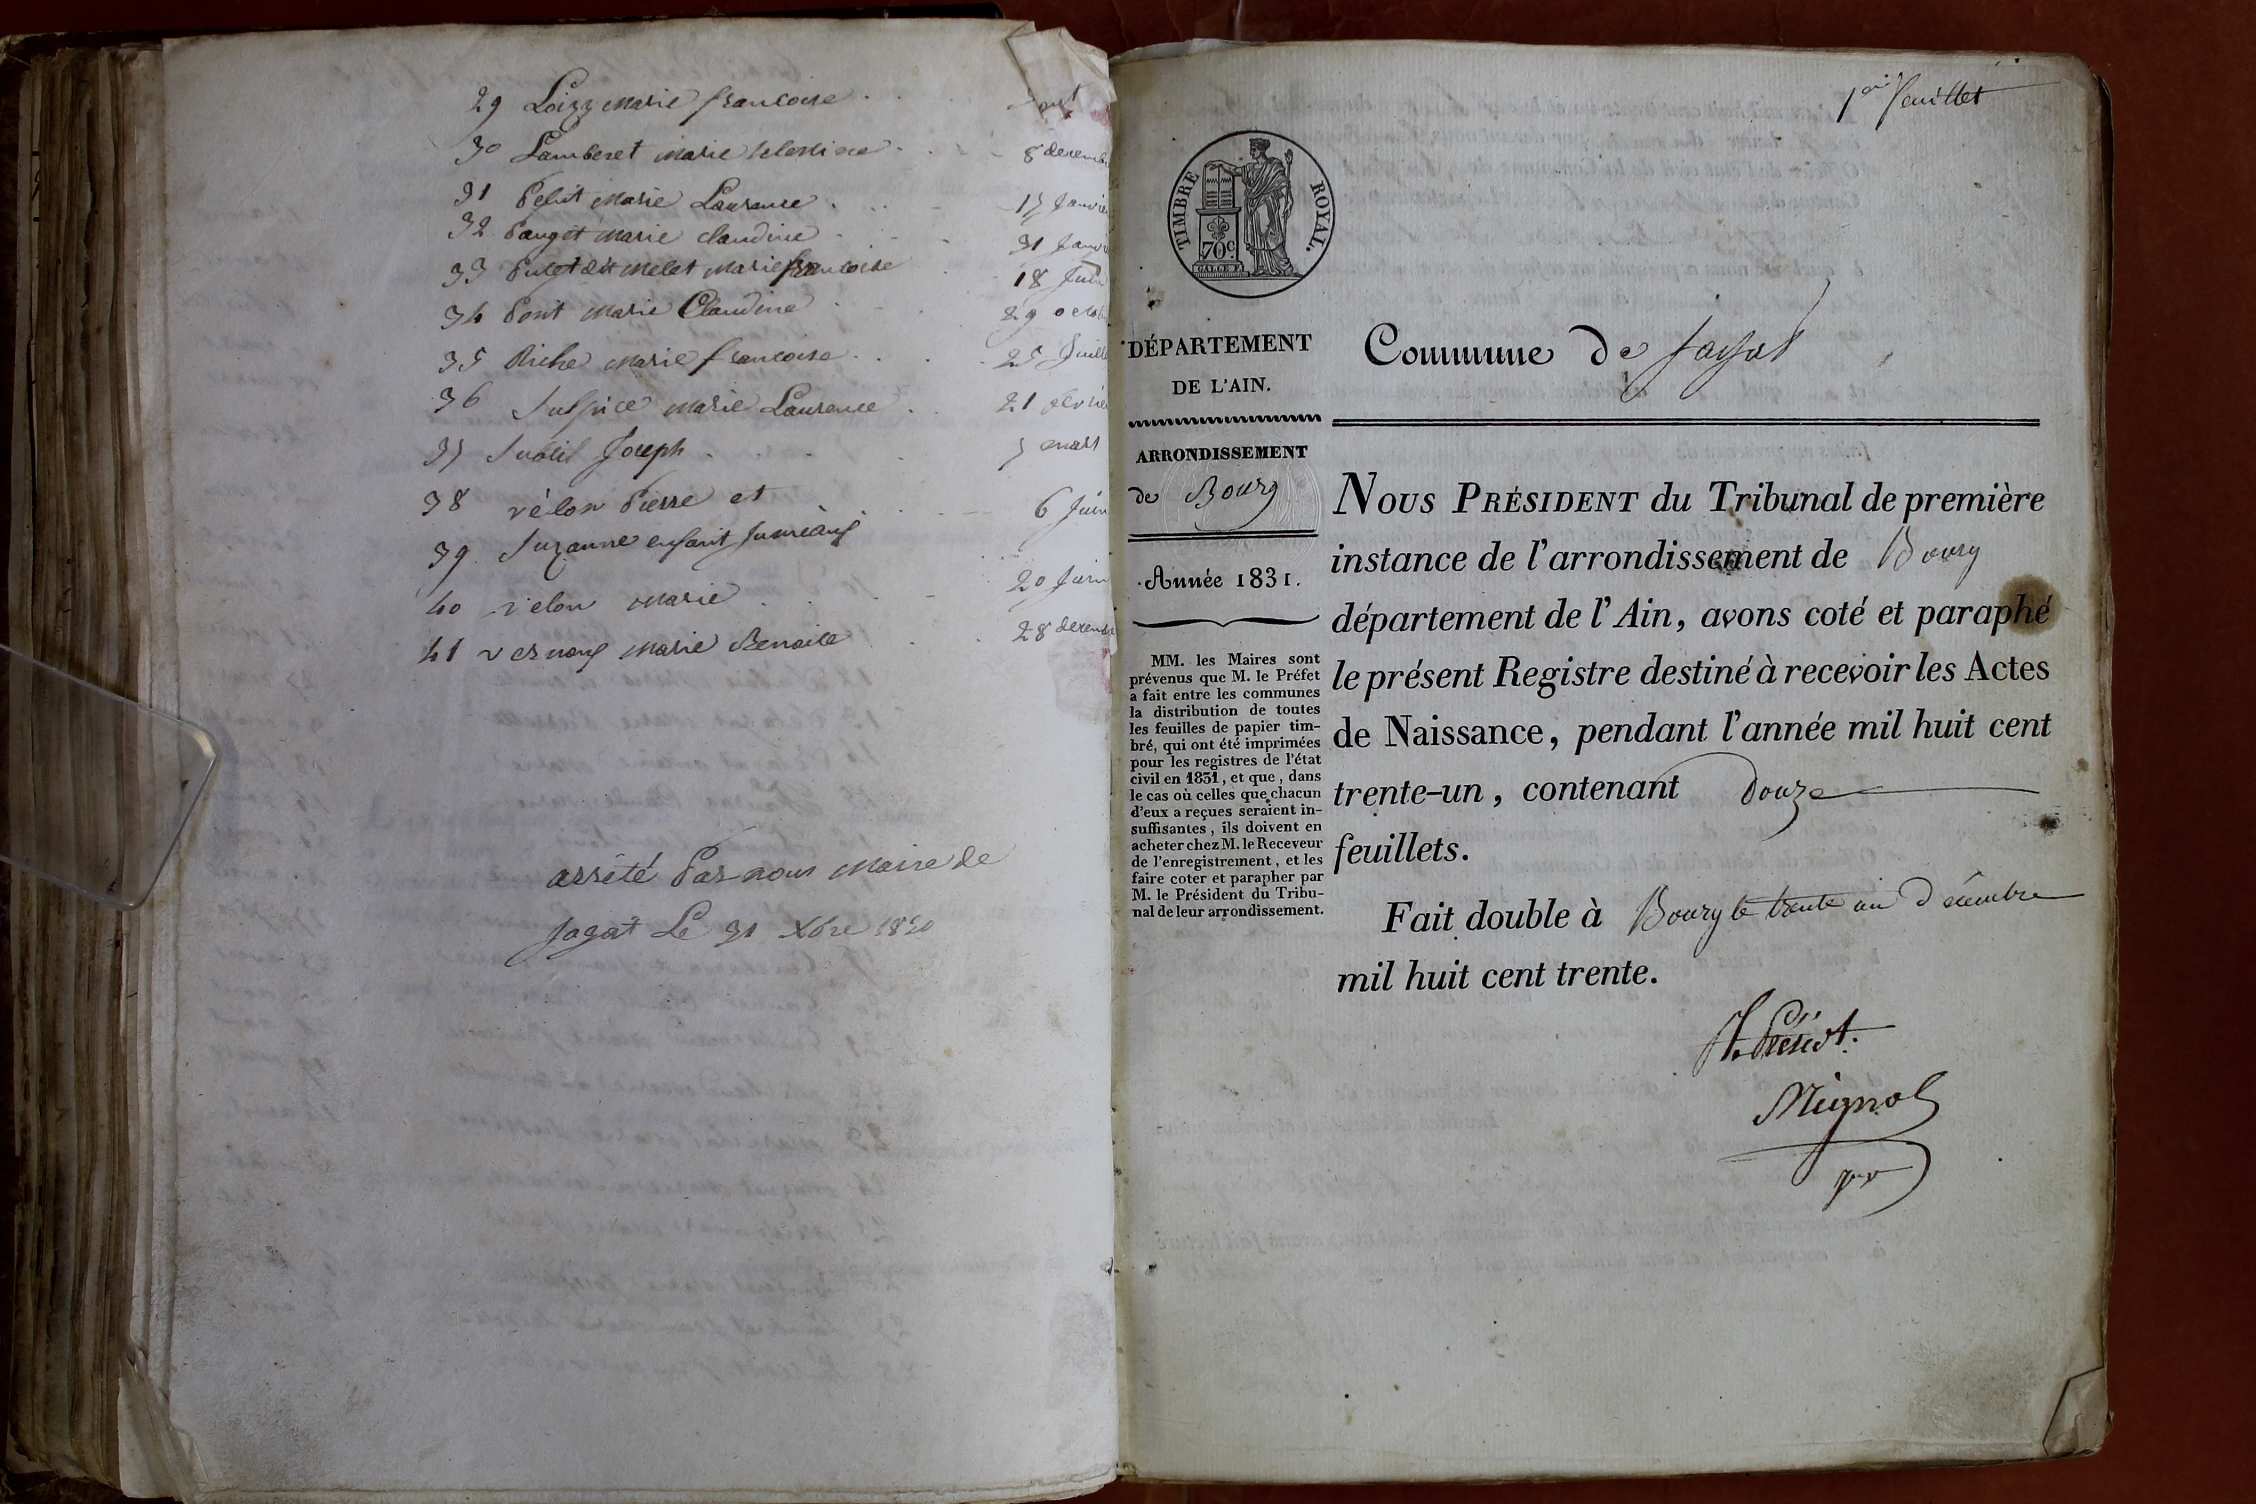 29 Loizy Marie françoise
30 Lamberet Marie Celestine 8 decembre
31 Petit Marie Laurence 17 Janvier
32 Pauget Marie Claudine 31 Janv
33 Puget dit Melet Marie françoise 18 Juin
34 Pont Marie Claudine 29 octob
35 Riche Marie françoise 25 Juill
36 Sulpice Marie Laurence 21 février
37 Subtil Joseph 7 mars
38 vélon Pierre et 6 Juin
39 Suzanne enfant Jumeaux
40 velon Marie 20 Juin
41 vernoux Marie Benoite 28 decemb
arrêté Par nous Maire de
Jayat Le 31 Xbre 1830
1er feuillet
TIMBRE ROYAL.
70c
DÉPARTEMENT
DE L'AIN.
Commune de Jayat
ARRONDISSEMENT
de Bourg
Année 1831.
MM. les Maires sont
prévenus que M. le Préfet
a fait entre les communes
la distribution de toutes
les feuilles de papier tim-
bré, qui ont été imprimées
pour les registres de l'état
civil en 1831, et que, dans
le cas où celles que chacun
d'eux a reçues seraient in-
suffisantes, ils doivent en
acheter chez M. le Receveur
de l'enregistrement, et les
faire coter et parapher par
M. le Président du Tribu-
nal de leur arrondissement.
NOUS PRÉSIDENT du Tribunal de première
instance de l'arrondissement de Bourg
département de l'Ain, avons coté et paraphé
le présent Registre destiné à recevoir les Actes
de Naissance, pendant l'année mil huit cent
trente-un, contenant douze
feuillets.
Fait double à Bourg le trente un Décembre
mil huit cent trente.